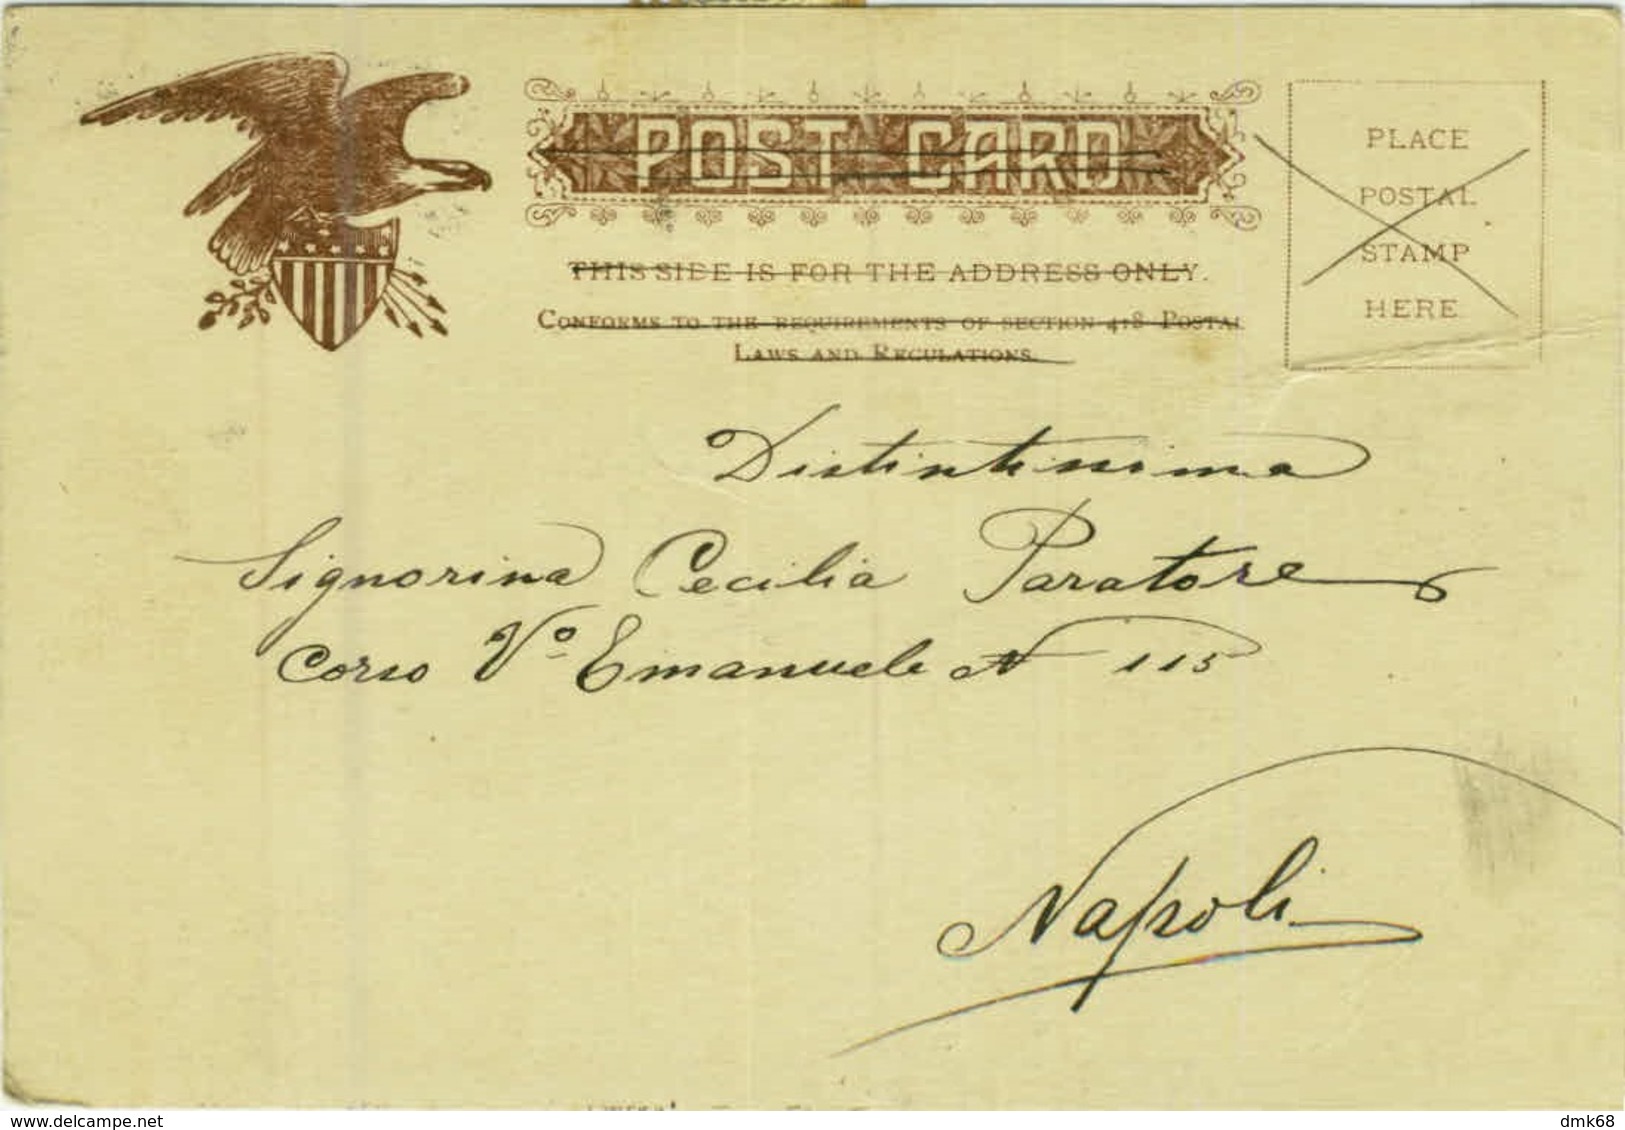 POST CARD
THIS SIDE IS FOR THE ADDRESS ONLY.
CONFORMS TO THE REQUIREMENTS OF SECTION 418 POSTAL
LAWS AND REGULATIONS.
PLACE
POSTAL
STAMP
HERE
Distintissima
Signorina Cecilia Paratore
Corso Vº Emanuele N 115
Napoli
delcampe.net
dmk68